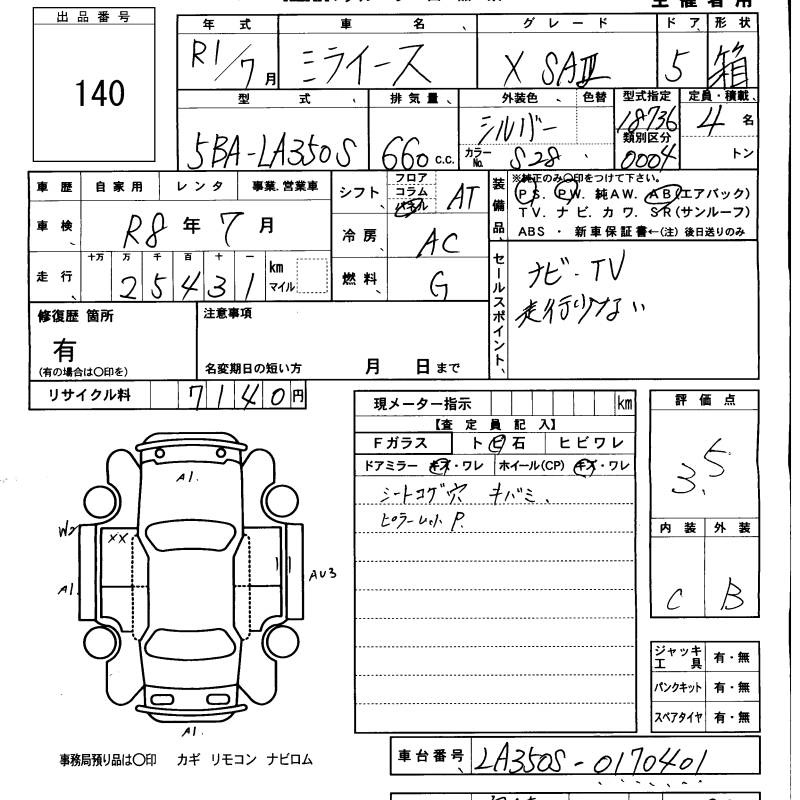 出品番号
140
年式 車名 グレード ドア 形状
R1/7月 ミライース X SAⅢ 5 箱
型式 排気量 外装色 色替 型式指定 定員・積載
5BA-LA350S 660 c.c. シルバー 18736 4 名
カラーNo. S28 類別区分 0004 トン
車歴 自家用 レンタ 事業.営業車
車検 R8年 7月
走行 十万 万 千 百 十 一
25431 km マイル
シフト フロア コラム パネル AT
冷房 AC
燃料 G
装備品
※純正のみ〇印をつけて下さい。
PS. PW. 純AW. AB(エアバック)
TV. ナビ. カワ. SR(サンルーフ)
ABS ・ 新車保証書←(注) 後日送りのみ
セールスポイント
ナビ・TV
走行少ない
修復歴 箇所
有
(有の場合は〇印を)
注意事項
名変期日の短い方 月 日まで
リサイクル料 7140円
現メーター指示 km
【査定員記入】
Fガラス トビ石 ヒビワレ
ドアミラー キズ・ワレ ホイール(CP) キズ・ワレ
シートコゲ穴 キバミ、
ピラー P.
評価点
3.5
内装 外装
C B
A1.
W2 XX
A1. AU3
A1.
ジャッキ工具 有・無
パンクキット 有・無
スペアタイヤ 有・無
事務局預り品は〇印 カギ リモコン ナビロム
車台番号 LA350S-0170401